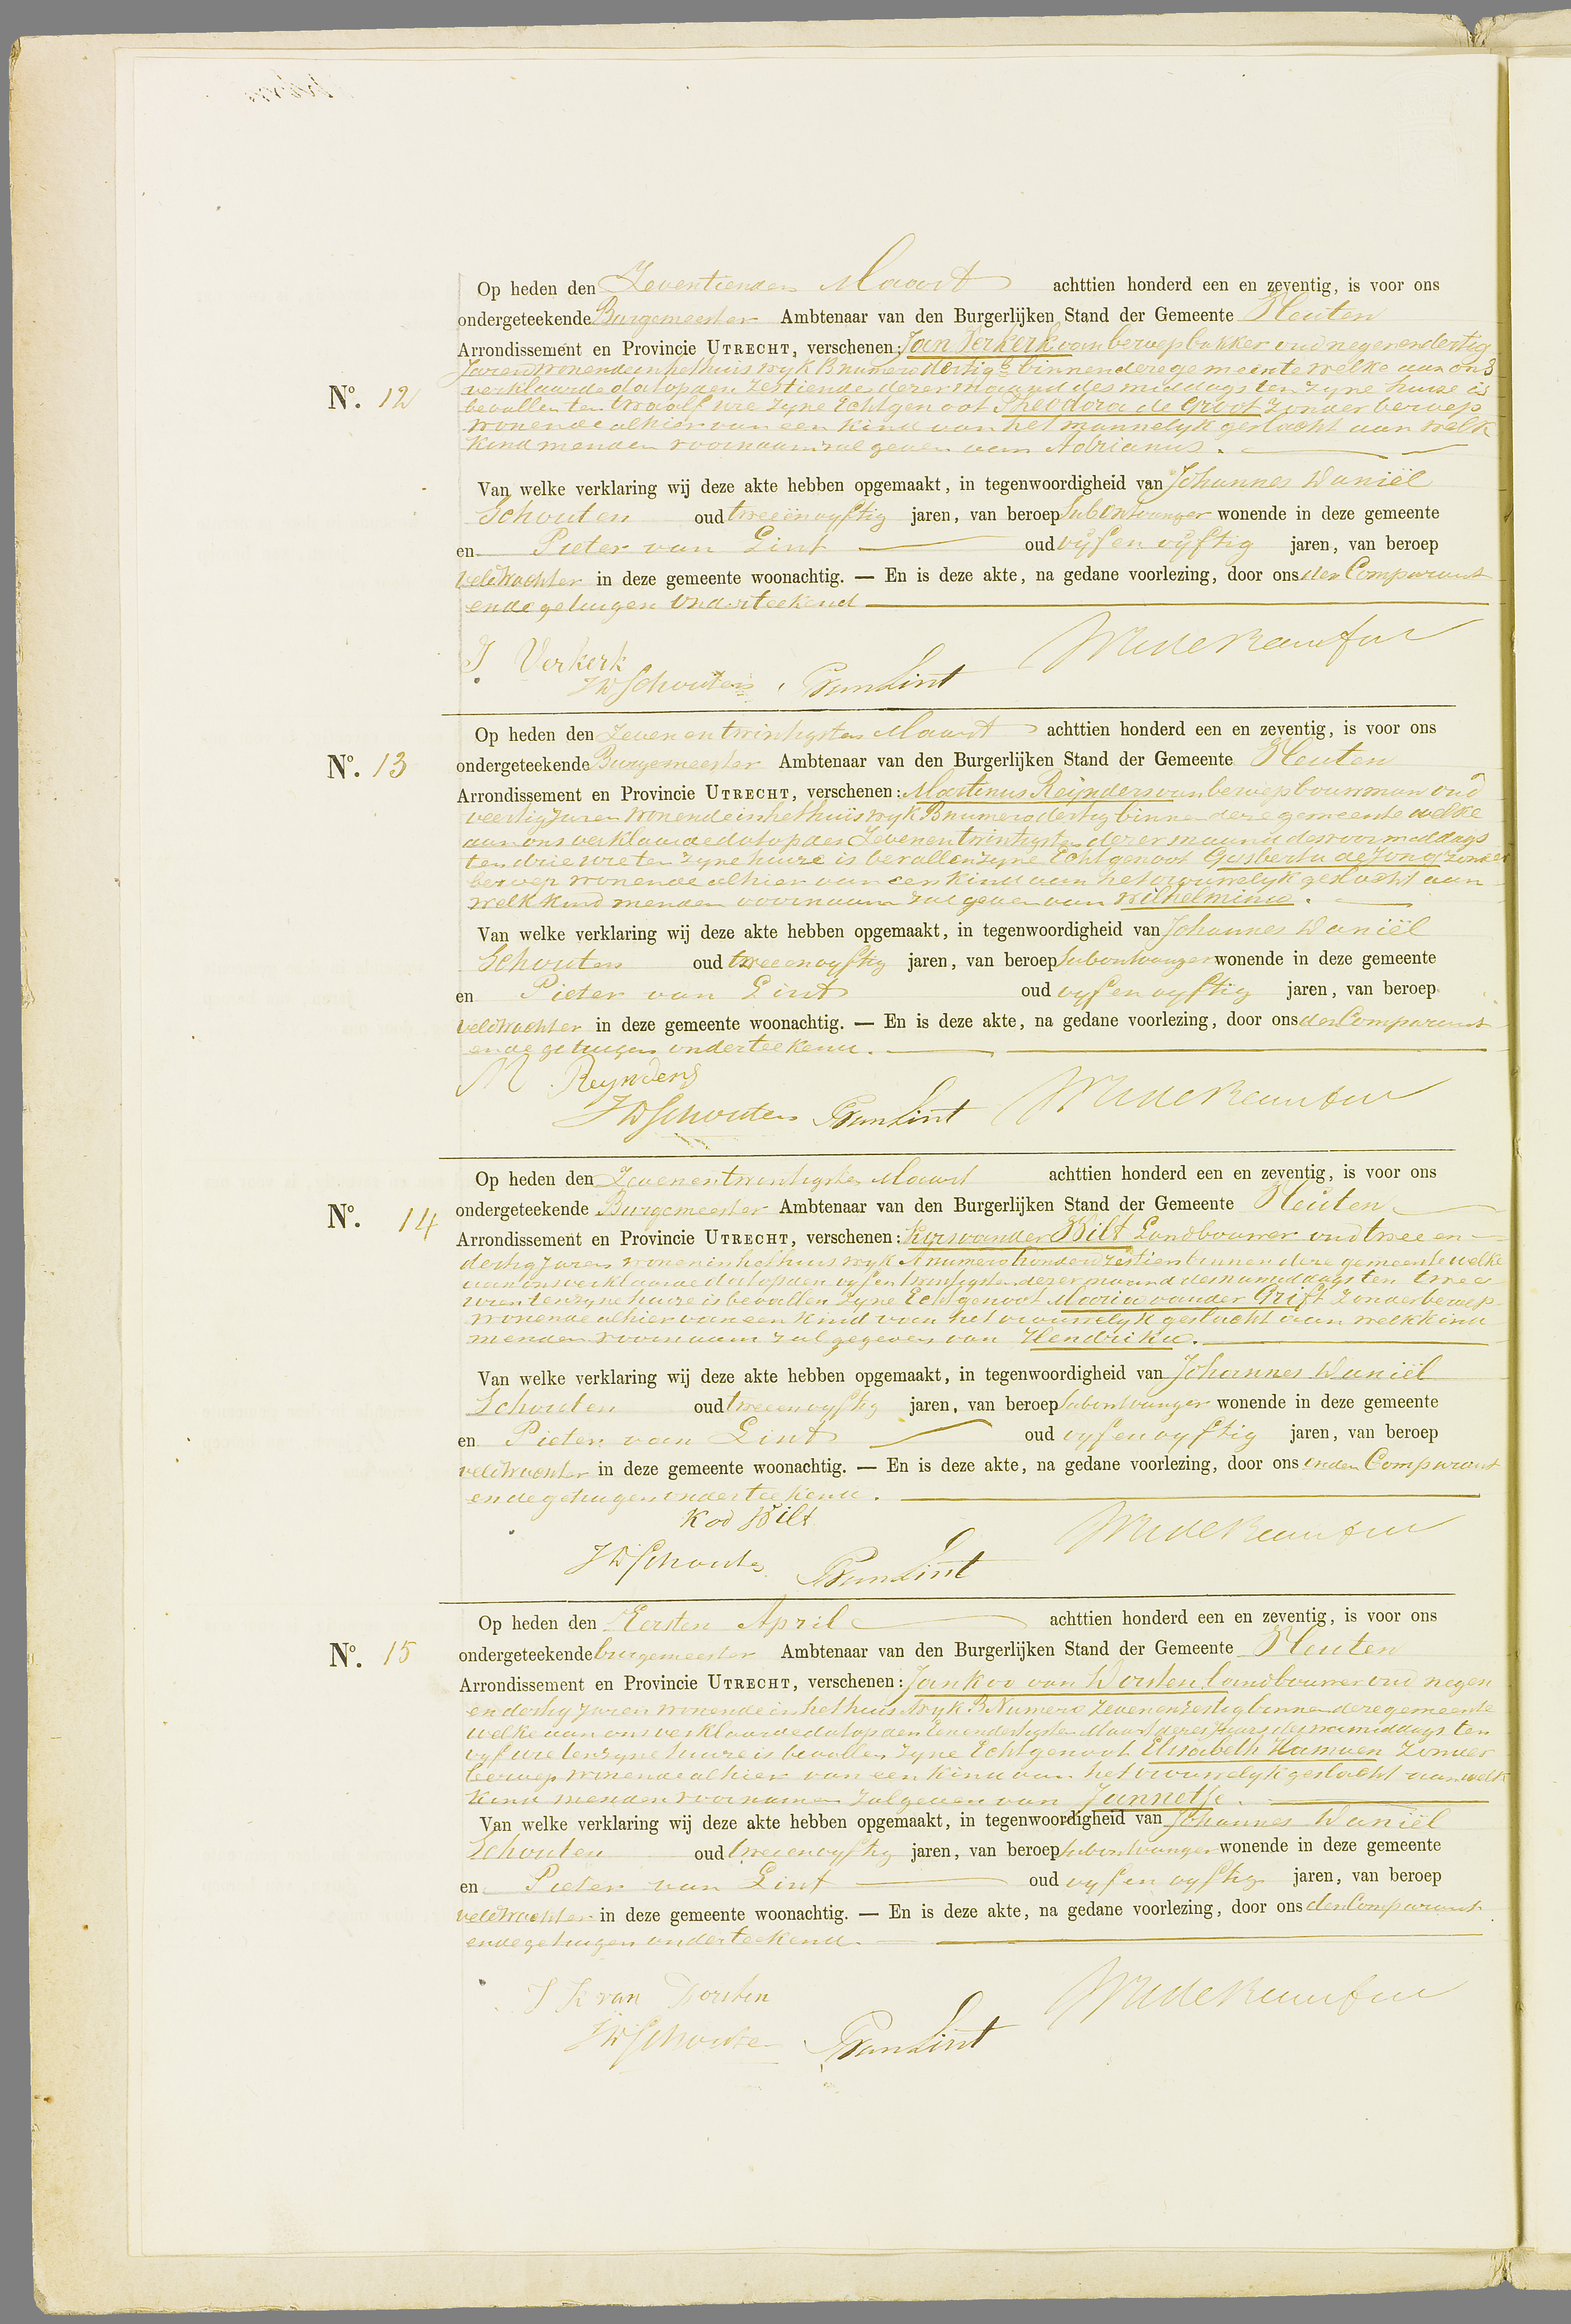 Op heden den Zeventienden Maart achttien honderd een en zeventig, is voor ons
ondergeteekende Burgemeester Ambtenaar van den Burgerlijken Stand der Gemeente Houten
Arrondissement en Provincie UTRECHT, verschenen: Jan Verkerk van beroep bakker oud negenendertig
Jaren wonende in het huis wyk B numero dertig binnen deze gemeente welke aan ons
No. 12 verklaarde dat op den zestienden dezer maand des middags ten zyne huize is
bevallen ten twaalf ure zyne Echtgenoot Theodora de Groot zonder beroep
wonende alhier van een kind van het mannelyk geslacht aan welk
kind men den voornaam zal geven van Adrianus.
Van welke verklaring wij deze akte hebben opgemaakt, in tegenwoordigheid van Johannes Daniël
Schouten oud tweeenvyftig jaren, van beroep Subontvanger wonende in deze gemeente
en Pieter van Lint oud vyfenvyftig jaren, van beroep
veldwachter in deze gemeente woonachtig. — En is deze akte, na gedane voorlezing, door ons den Comparant
en de getuigen onderteekend
J Verkerk
JD Schouten PvanLint
Op heden den Zevenentwintigsten Maart achttien honderd een en zeventig, is voor ons
No. 13 ondergeteekende Burgemeester Ambtenaar van den Burgerlijken Stand der Gemeente Houten
Arrondissement en Provincie UTRECHT, verschenen: Martinus Reijnders van beroep bouwman oud
veertig Jaren wonende in het huis wyk B numero dertig binnen deze gemeente welke
aan ons verklaarde dat op den Zevenentwintigsten dezer maand des voormiddags
ten drie ure ten zyne huize is bevallen zyne Echtgenoot Gysberta de Jong zonder
beroep wonende alhier van een kind van het vrouwelyk geslacht aan
welk kind men den voornaam zal geven van Wilhelmina.
Van welke verklaring wij deze akte hebben opgemaakt, in tegenwoordigheid van Johannes Daniël
Schouten oud tweeenvyftig jaren, van beroep Subontvanger wonende in deze gemeente
en Pieter van Lint oud vyfenvyftig jaren, van beroep
veldwachter in deze gemeente woonachtig. — En is deze akte, na gedane voorlezing, door ons den Comparant
en de getuigen onderteekend.
M Reynders
JD Schouten PvanLint
Op heden den Zevenentwintigsten Maart achttien honderd een en zeventig, is voor ons
No. 14 ondergeteekende Burgemeester Ambtenaar van den Burgerlijken Stand der Gemeente Houten
Arrondissement en Provincie UTRECHT, verschenen: van der Bilt Landbouwer oud twee en
dertig Jaren wonen in het huis wyk A numero honderd zestien binnen deze gemeente welke
aan ons verklaarde dat op den vyfentwintigsten dezer maand des namiddags ten twee
uren ten zyne huize is bevallen zyne Echtgenoot Maria van der Grift zonder beroep
wonende alhier van een kind van het vrouwelyk geslacht aan welk kind
men den voornaam zal gegeven van Hendrika.
Van welke verklaring wij deze akte hebben opgemaakt, in tegenwoordigheid van Johannes Daniël
Schouten oud tweeenvyftig jaren, van beroep Subontvanger wonende in deze gemeente
en Pieter van Lint oud vyfenvyftig jaren, van beroep
veldwachter in deze gemeente woonachtig. — En is deze akte, na gedane voorlezing, door ons en den Comparant
en de getuigen onderteekend.
K vd Bilt
JD Schouten PvanLint
Op heden den Eersten April achttien honderd een en zeventig, is voor ons
No. 15 ondergeteekende burgemeester Ambtenaar van den Burgerlijken Stand der Gemeente Houten
Arrondissement en Provincie UTRECHT, verschenen: Jan Koo van Dorsten landbouwer oud negen
en dertig Jaren wonende in het huis wyk B Numero zevenenzestig binnen deze gemeente
welke aan ons verklaarde dat op den Eenendertigsten Maart dezes Jaars des namiddags ten
vyf ure ten zyne huize is bevallen zyne Echtgenoot Elisabeth Hamoen zonder
beroep wonende alhier van een kind van het vrouwelyk geslacht aan welk
kind men den voornamen zal geven van Jannetje.
Van welke verklaring wij deze akte hebben opgemaakt, in tegenwoordigheid van Johannes Daniël
Schouten oud tweeenvyftig jaren, van beroep Subontvanger wonende in deze gemeente
en Pieter van Lint oud vyfenvyftig jaren, van beroep
veldwachter in deze gemeente woonachtig. — En is deze akte, na gedane voorlezing, door ons den Comparant
en de getuigen onderteekend.
J K van Dorsten
JD Schouten PvanLint